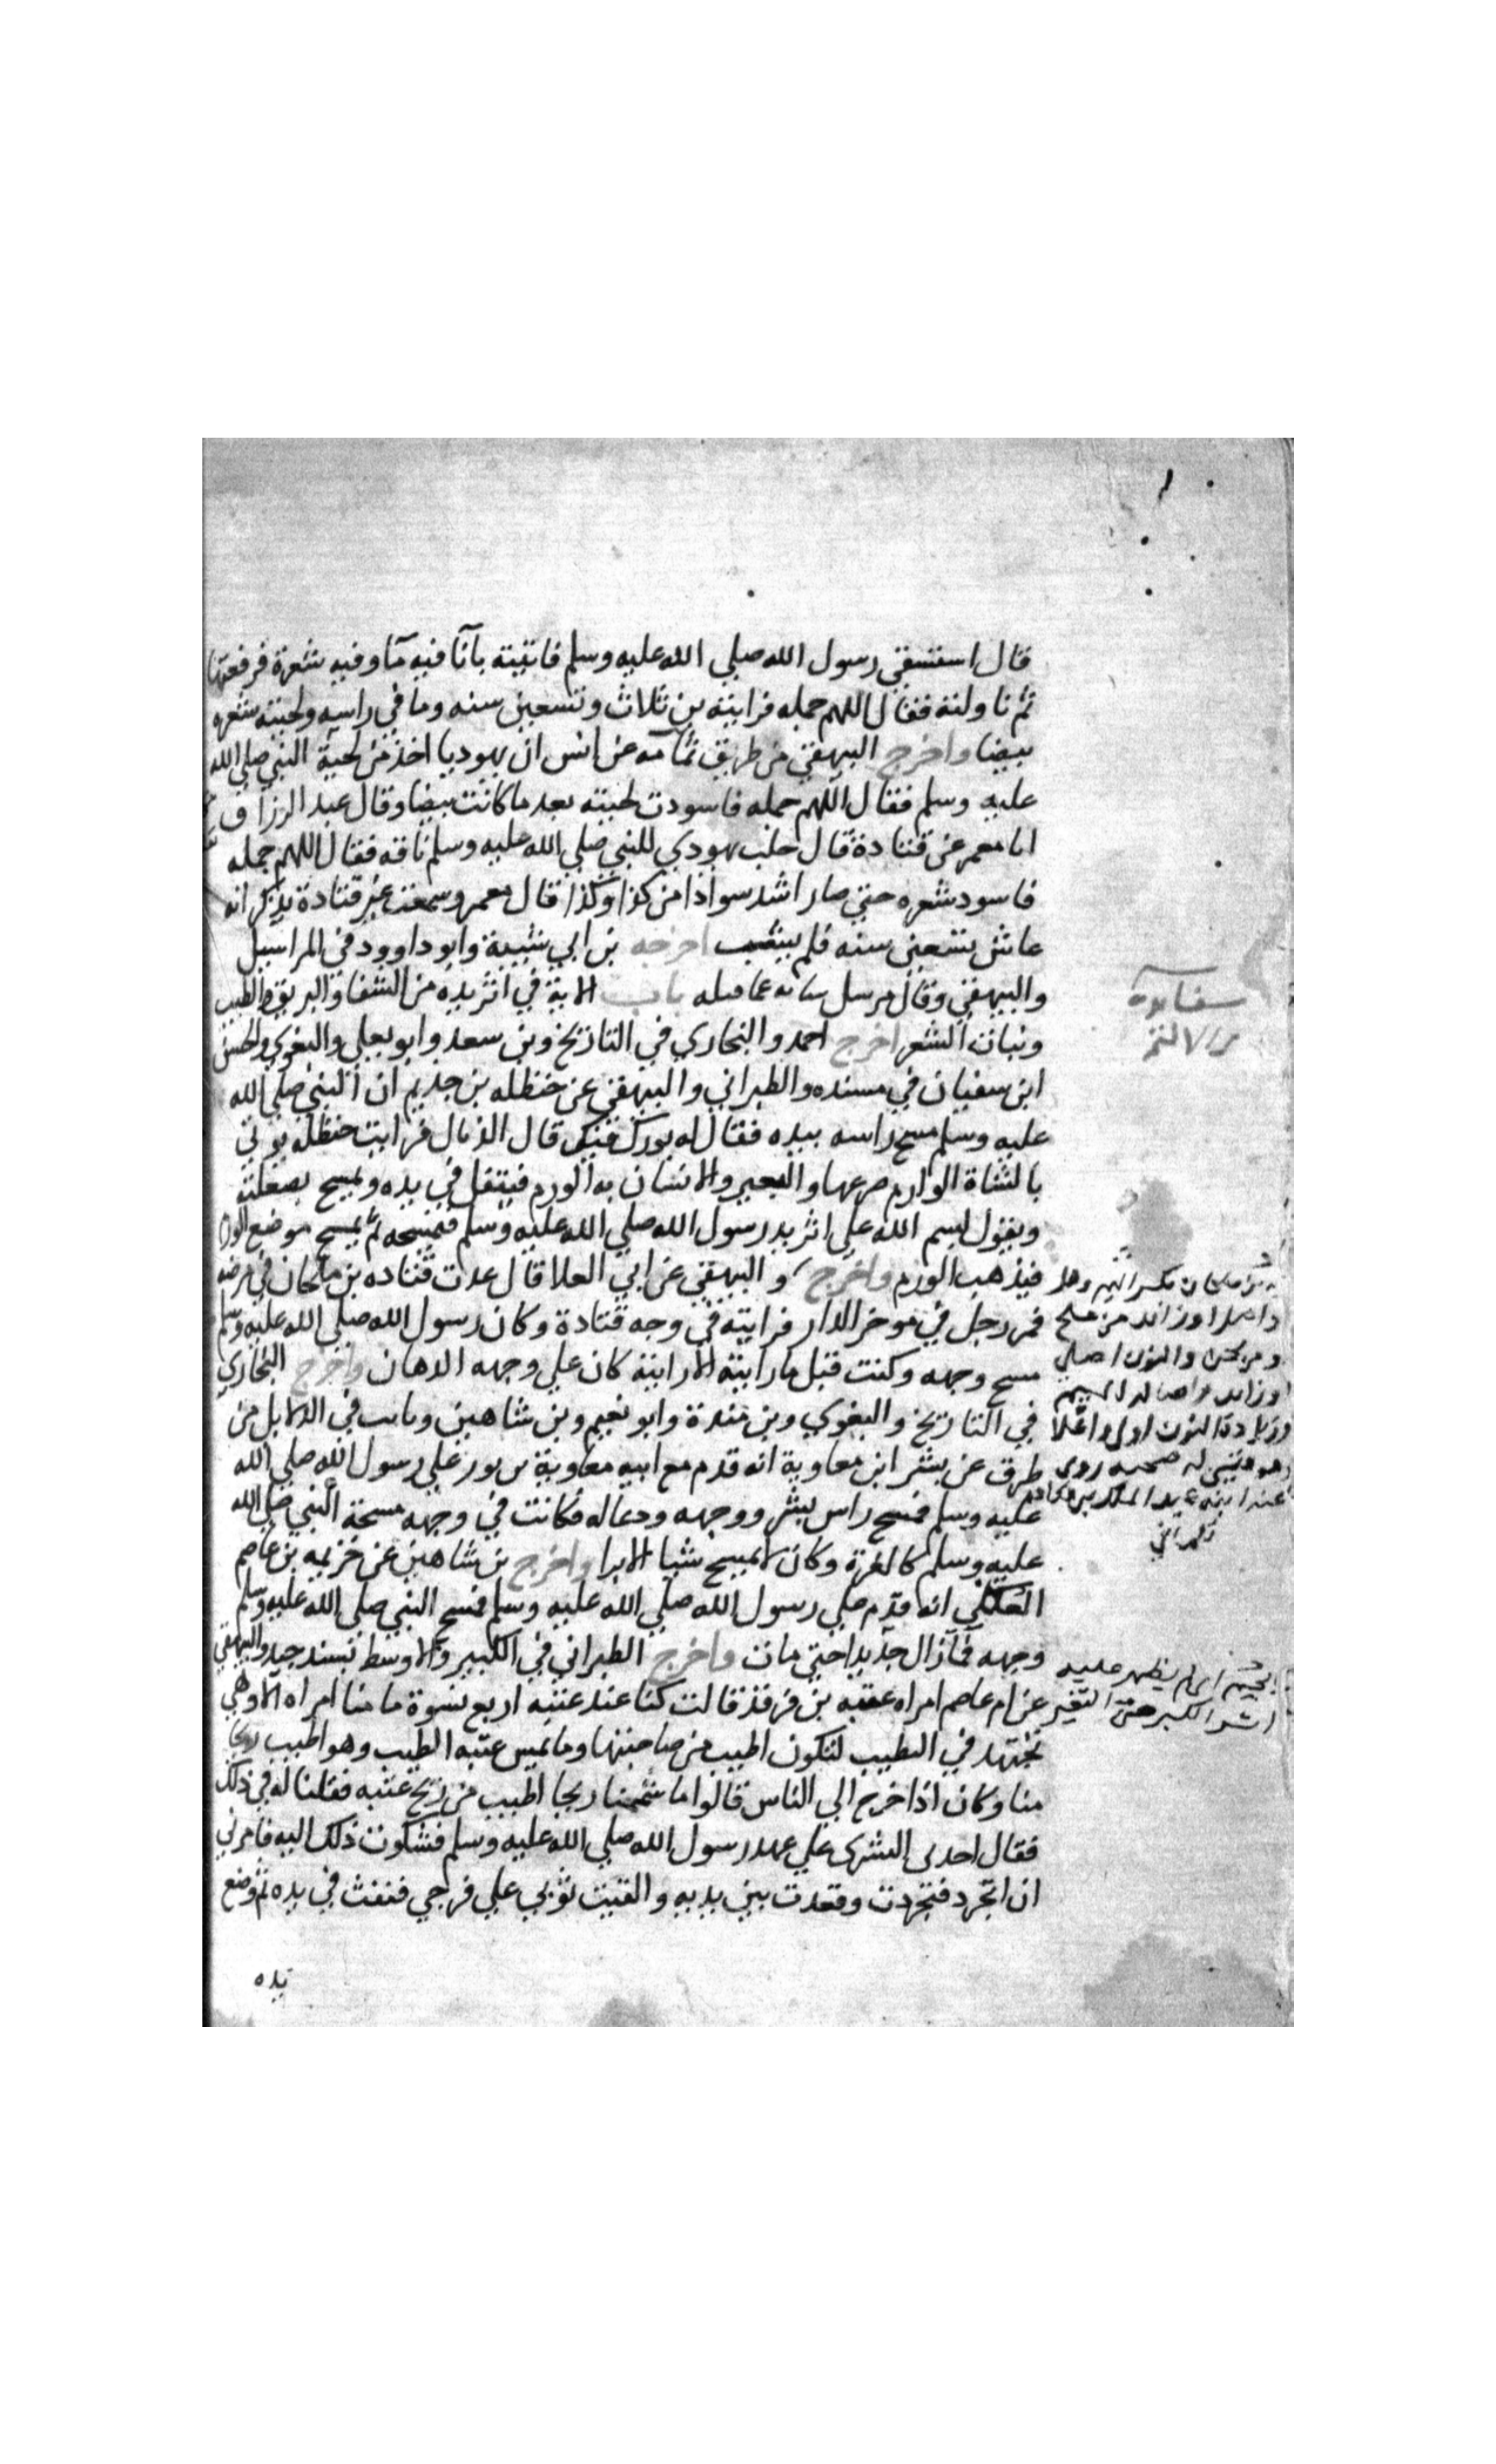 قال استسقي رسول الله صلي الله عليه وسلم فاتيته بآنآ فيه مآ وفيه شعرة فرفعتها
ثم ناولته فقال اللهم جمله فرايته بن ثلاث وتسعين سنه وما في راسه ولحيته شعره
بيضا واخرج البيهقي من طريق ثمامه عن انس ان يهوديا اخذ من لحية النبي صلي الله
عليه وسلم فقال اللهم جمله فاسودت لحيته بعد ما كانت بيضا وقال عبد الرزاق
انا معمر عن قتادة قال حلب يهودي للنبي صلي الله عليه وسلم ناقه فقال اللهم جمله
فاسود شعره حتي صار اشد سوادا من كذا وكذا قال معمر وسمعت غير قتادة يذكر انه
عاش تسعين سنه فلم يشب اخرجه بن ابي شيبة وابو داوود في المراسيل
والبيهقي وقال مرسل شاهد لما قبله باب الاية في اثر يده من الشفا والبريق والطيب
ونبات الشعر اخرج احمد والبخاري في التاريخ وبن سعد وابو يعلي والبغوي والحسن
ابن سفيان في مسنده والطبراني والبيهقي عن حنظله بن حذيم ان النبي صلي الله
عليه وسلم مسح راسه بيده فقال له بورك فيك قال الذيال فرايت حنظلة يوتي
بالشاة الوارم ضرعها والبعير والانسان به الورم فيتفل في يده ويمسح بصعلته
ويقول بسم الله علي اثر يد رسول الله صلي الله عليه وسلم فيمسحه ثم يمسح موضع الورم
فيذهب الورم واخرج والبيهقي عن ابي العلا قال عدت قتاده بن ملحان في مرضه
فمر رجل في موخر الدار فرايته في وجه قتادة وكان رسول الله صلي الله عليه وسلم
مسح وجهه وكنت قبل ما رايته الا رايته كان علي وجهه الدهان واخرج البخاري
في التاريخ والبغوي وبن مندة وابو نعيم وبن شاهين وثابت في الدلايل من
طرق عن بشر ابن معاوية انه قدم مع ابيه معاوية بن ثور علي رسول الله صلي الله
عليه وسلم فمسح راس بشر ووجهه ودعا له فكانت في وجهه مسحة النبي صلي الله
عليه وسلم كالغرة وكان لا يمسح شيا الا برا واخرج بن شاهين عن خزيمه بن عاصم
العكلي انه قدم علي رسول الله صلي الله عليه وسلم فمسح النبي صلي الله عليه وسلم
وجهه فما زال جديدا حتي مات واخرج الطبراني في الكبير والاوسط بسند جيد والبيهقي
عن ام عاصم امراه عتبه بن فرقد قالت كنا عند عتبه اربع نسوة ما منا امراه الا وهي
تجتهد في الطيب لتكون اطيب من صاحبتها وما يمس عتبه الطيب وهو اطيب ريحا
منا وكان اذا خرج الي الناس قالوا ما شممنا ريحا اطيب من ريح عتبه فقلنا له في ذلك
فقال اخذني الشرى علي عهد رسول الله صلي الله عليه وسلم فشكوت ذلك اليه فامرني
ان اتجرد فتجردت وقعدت بين يديه والقيت ثوبي علي فرجي فنفث في يده ثم وضع
يده
ملحان بكسر الميم
زايد من ملح
والنون اصلي
وزيادة النون اولي
صحبه روي
عنه ابنه عبد الملك
اي لم يظهر عليه
اثر الكبر حتي التغير